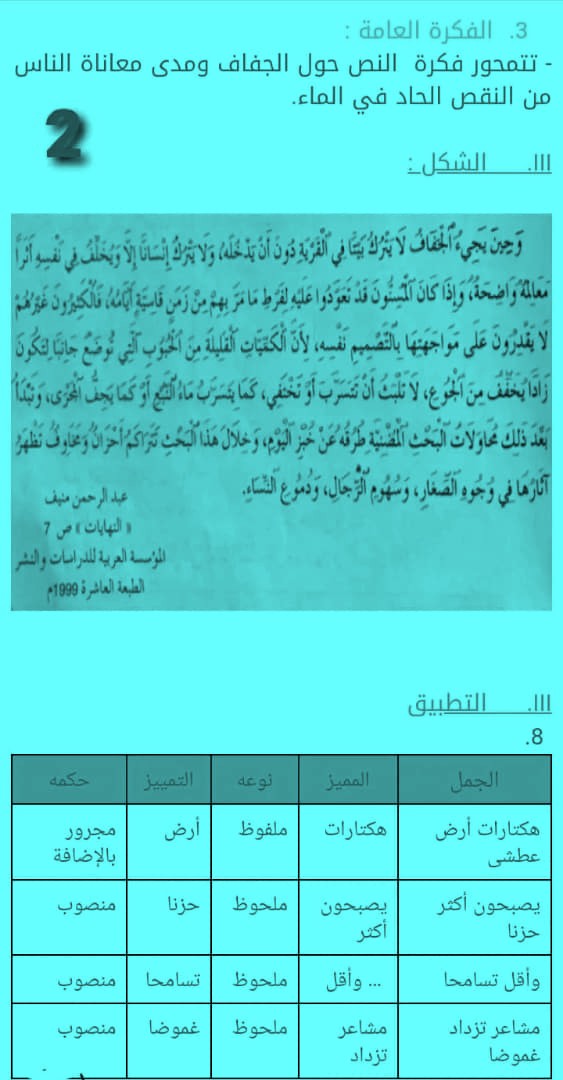 3. الفكرة العامة :
- تتمحور فكرة النص حول الجفاف ومدى معاناة الناس
من النقص الحاد في الماء.
2
III. الشكل :
وَحِينَ يَجِيءُ اَلْجَفَافُ لَا يَتْرُكُ بَيْتًا فِي اَلْقَرْيَةِ دُونَ أَنْ يَدْخُلَهُ، وَلَا يَتْرُكُ إِنْسَانًا إِلَّا وَيُخَلِّفُ فِي نَفْسِهِ أَثَرًا
مَعَالِمُهُ وَاضِحَةٌ، وَإِذَا كَانَ اَلْمُسِنُّونَ قَدْ تَعَوَّدُوا عَلَيْهِ لِفَرْطِ مَا مَرَّ بِهِمْ مِنْ زَمَنٍ قَاسِيَةٍ أَيَّامُهُ، فَالْكَثِيرُونَ غَيْرُهُمْ
لَا يَقْدِرُونَ عَلَى مُوَاجَهَتِهَا بِالتَّصْمِيمِ نَفْسِهِ، لِأَنَّ اَلْكَمِّيَّاتِ اَلْقَلِيلَةَ مِنَ اَلْحُبُوبِ اَلَّتِي تُوضَعُ جَانِبًا لِتَكُونَ
زَادًا يُخَفِّفُ مِنَ اَلْجُوعِ، لَا تَلْبَثُ أَنْ تَتَسَرَّبَ أَوْ تَخْتَفِي، كَمَا يَتَسَرَّبُ مَاءُ اَلنَّبْعِ أَوْ كَمَا يَجِفُّ اَلْمَجْرَى، وَتَبْدَأُ
بَعْدَ ذَلِكَ مُحَاوَلَاتُ اَلْبَحْثِ اَلْمُضْنِيَةِ طُرُقُهُ عَنْ خُبْزِ اَلْيَوْمِ، وَخِلَالَ هَذَا اَلْبَحْثِ تَتَرَاكَمُ أَحْزَانٌ وَمَخَاوِفُ تَظْهَرُ
آثَارُهَا فِي وُجُوهِ اَلصِّغَارِ، وَسُهُومِ اَلرِّجَالِ، وَدُمُوعِ اَلنِّسَاءِ.
عبد الرحمن منيف
« النهايات » ص 7
المؤسسة العربية للدراسات والنشر
الطبعة العاشرة 1999م
III. التطبيق
8.
الجمل المميز نوعه التمييز حكمه
هكتارات أرض عطشى هكتارات ملفوظ أرض مجرور بالإضافة
يصبحون أكثر حزنا يصبحون أكثر ملحوظ حزنا منصوب
وأقل تسامحا ... وأقل ملحوظ تسامحا منصوب
مشاعر تزداد غموضا مشاعر تزداد ملحوظ غموضا منصوب